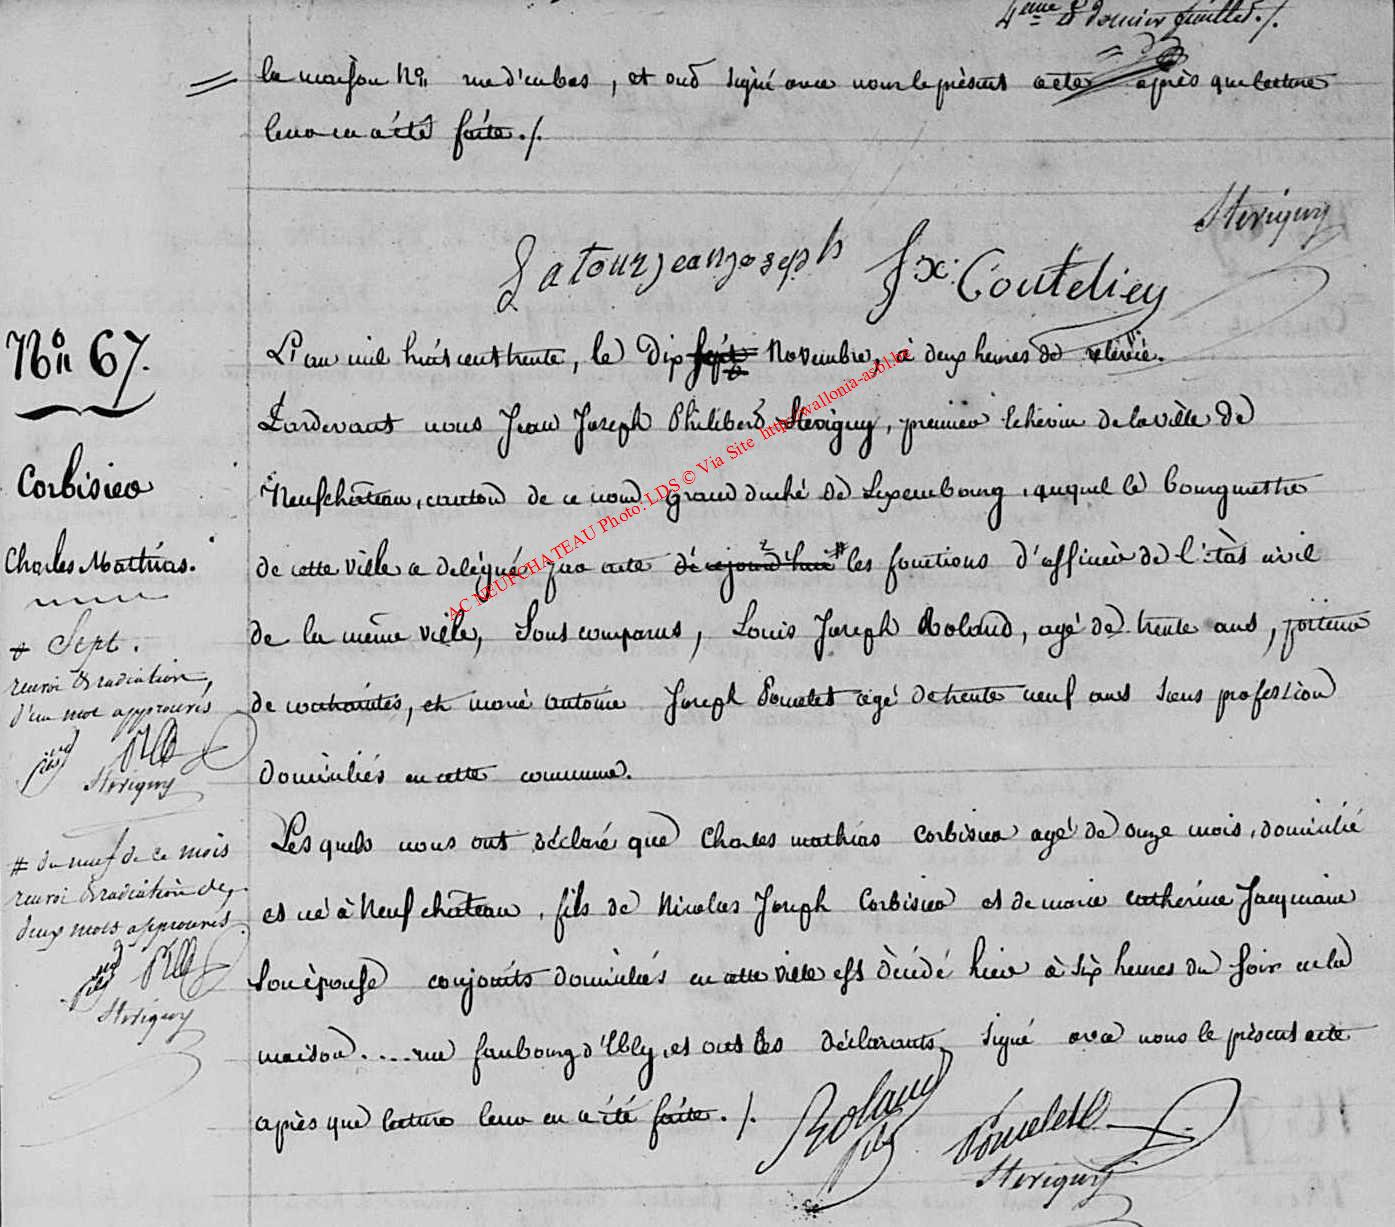 4eme & dernier feuillet ./.
la maison No rue d'enbas, et ont signé avec nous le présent acte après que lecture
leur en a été faite ./.
Stevigny
Latour jean joseph fx. Coutelier
No 67.
Corbisier
Charles Mathias.
L'an mil huit cent trente, le dix sept + Novembre, à deux heures de relevée.
Pardevant nous Jean Joseph Philibert Stevigny, premier Echevin de la ville de
Neufchâteau, canton de ce nom Grand duché de Luxembourg, auquel le bourgmestre
de cette ville a delégué par acte de cejourd'hui # les fonctions d'officier de l'état civil
de la même ville, Sont comparus, Louis Joseph Roland, agé de trente ans,
de contraintes, et marie antoine Joseph Poncelet agé de trente neuf ans sans profession
domiciliés en cette commune.
Les quels nous ont déclaré que Charles mathias Corbisier agé de onze mois, domicilié
et né à Neufchâteau, fils de Nicolas Joseph Corbisier et de marie catherine Jacquemin
Son épouse conjoints domiciliés en cette ville est décédé hier à six heures du soir en la
maison .... rue faubourg d'Illy, et ont les déclarants signé avec nous le présent acte
après que lecture leur en a été faite ./.
Roland Poncelet
Stevigny
+ Sept.
renvoi & radiation
d'un mot approuvés
Stevigny
# du neuf de ce mois
renvoi & radiation de
deux mots approuvés
Stevigny
AC NEUFCHATEAU Photo: LDS © Via Site http://wallonia-asbl.be